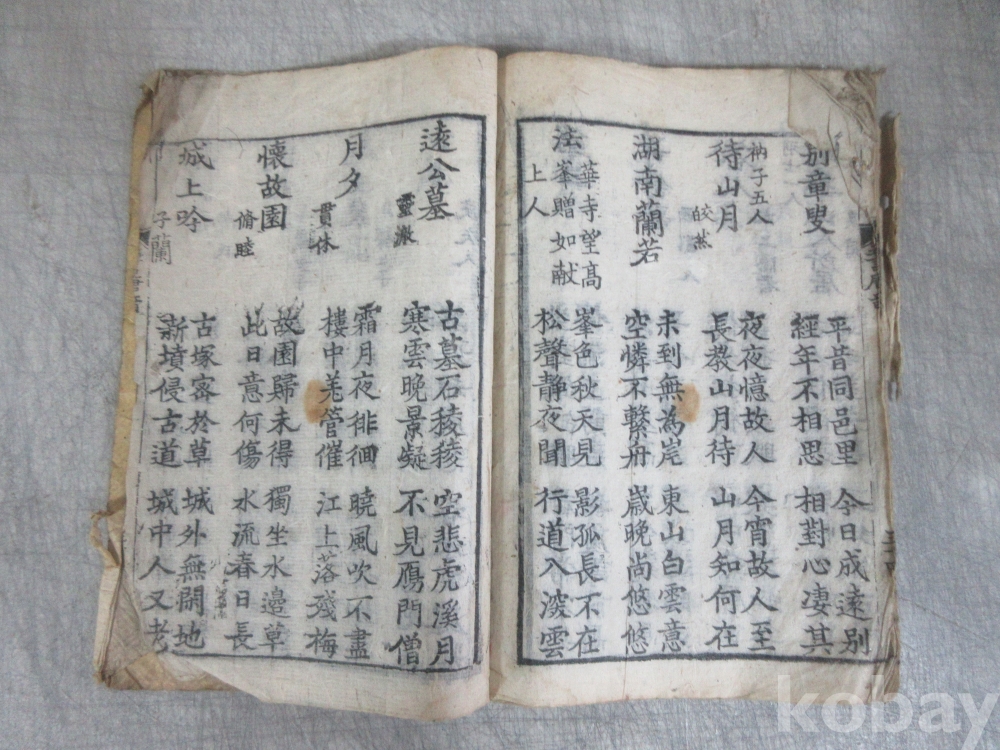 別童叟
平昔同邑里
經年不相思
今日成遠別
相對心凄其
衲子五人
待山月
皎然
夜夜憶故人
長教山月待
今宵故人至
山月知何在
湖南蘭若
未到無為岸
空憐不繫舟
東山白雲意
歲晚尚悠悠
法華寺望高
峯贈如献
上人
峯色秋天見
松聲静夜聞
影孤長不在
行道入深雲
遠公墓
靈澈
古墓石稜稜
寒雲晚景凝
空悲虎溪月
不見鴈門僧
月夕
貫休
霜月夜徘徊
樓中羌管催
曉風吹不盡
江上落殘梅
懷故園
脩睦
故園歸未得
此日意何傷
獨坐水邊草
水流春日長
城上吟
子蘭
古塚密於草
新墳侵古道
城外無開地
城中人又老
kobay